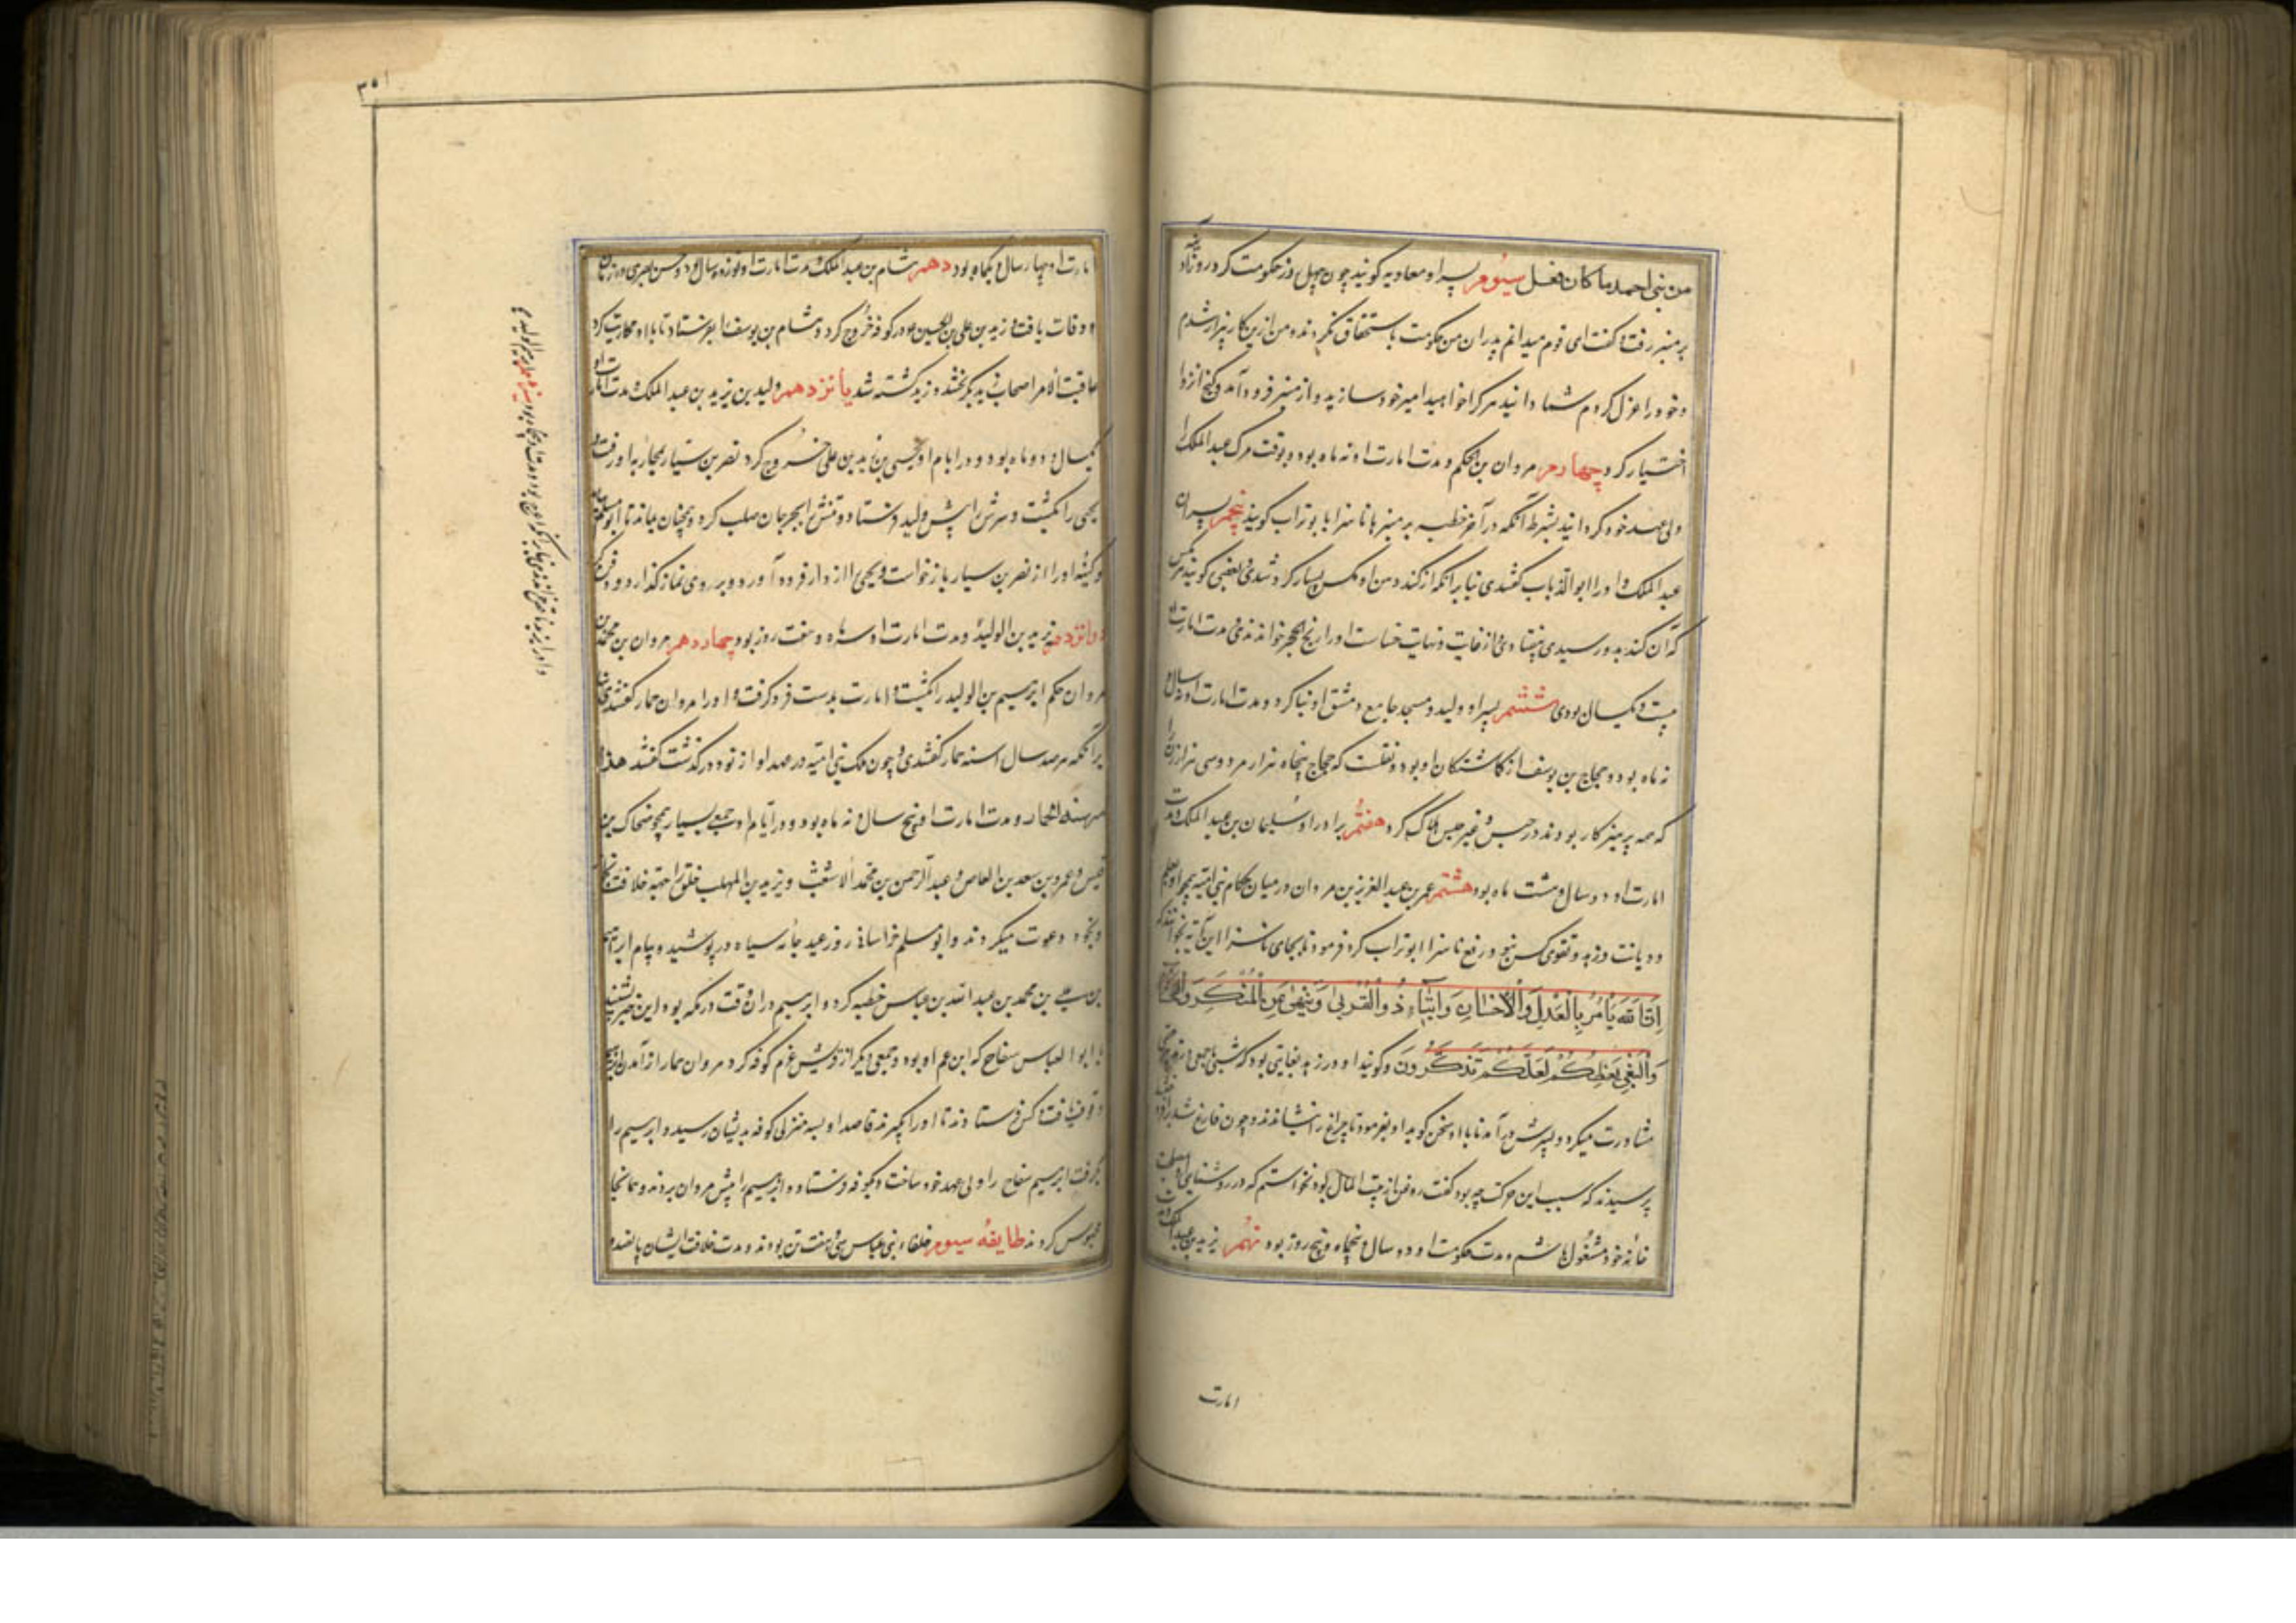 من بنی احمد ما کان فعل سیوم پسر او معاویه گویند چون چهل روز حکومت کرد روز آدینه
بر منبر رفت و گفت ای قوم میدانم پدران من حکومت باستحقاق نکردند و من ازین کار بیزار شدم
و خود را عزل کردم شما دانید هر کرا خواهید امیر خود سازید و از منبر فرود آمد و کنج انزوا
اختیار کرد چهارم مروان بن الحکم و مدت امارت او نه ماه بود و بوقت مرگ عبد الملک را
ولی عهد خود گردانید بشرط آنکه در آخر خطبه بر منبرها ناسزا با بو تراب گویند پنجم پسر او
عبد الملک و او را ابو الذباب گفتندی بنا بر آنکه از گند دهن او مگس بسیار گرد شدی بعضی گویند هر مگس
که آن گند بدو رسیدی بیفتادی و از غایت و نهایت خساست او را رشح الحجر خواندندی مدت امارت او
بیست و یکسال بودی ششم پسر او ولید و مسجد جامع دمشق او بنا کرد و مدت امارت او نه سال و
نه ماه بود و حجاج بن یوسف از گماشتگان او بود و نقلست که حجاج پنجاه هزار مرد و سی هزار زن را
که همه پرهیزکار بودند در حبس و غیر حبس هلاک کرد هفتم برادر او سلیمان بن عبد الملک و مدت
امارت او دو سال و هشت ماه بود هشتم عمر بن عبد العزیز بن مروان در میان حکام بنی امیه بجز او بعلم
و دیانت و زهد و تقوی کس نبود رفع ناسزا ابو تراب کرد فرمود تا بجای ناسزا این آیه بخوانند که
اِنَّ اللّهَ یَأمُرُ بِالْعَدْلِ وَالْاِحْسَانِ وَاِیتَآءِ ذُوالْقُرْبٰی وَیَنْهٰی عَنِ الْمُنْکَرِ وَالْفَحْشَآءِ
وَالْبَغْیِ یَعِظُکُمْ لَعَلَّکُمْ تَذَکَّرُونَ و گویند او در زهد بغایتی بود که شبی با جمعی در
مشاورت میکرد و پسرش درآمد تا با او سخن گوید او بفرمود تا چراغ را بنشاندند و چون فارغ شد از او
پرسیدند که سبب این حرکت چه بود گفت روغن از بیت المال بود نخواستم که در روشنایی
خانه خود مشغول باشم و مدت حکومت او دو سال و پنجماه و پنج روز بود نهم یزید بن عبد الملک و مدت
امارت
۳۵۱
امارت او چهار سال و یکماه بود دهم هشام بن عبد الملک مدت امارت او نوزده سال بود و حسن بصری در زمان
او وفات یافت و زید بن علی بن الحسین در کوفه خروج کرد و هشام بن یوسف را بفرستاد تا با او محاربت کرد
عاقبت الامر اصحاب زید بگریختند و زید کشته شد یانزدهم ولید بن یزید بن عبد الملک مدت امارت او
یکسال و دو ماه بود و در ایام او یحیی بن زید بن علی خروج کرد نصر بن سیار بمحاربه او رفت و
یحیی را بکشت و سرش را پیش ولید فرستاد و تنش را بجرجان صلب کرد و همچنان بماند تا ابو مسلم
و کشنده او را از نصر بن سیار بازخواست و یحیی را از دار فرود آورد و بر وی نماز گذارد و دفن کرد
دوانزدهم یزید بن الولید و مدت امارت او سه ماه و هفت روز بود چهاردهم مروان بن محمد بن
مروان حکم ابرهیم بن الولید را بکشت و امارت بدست فرو گرفت و او را مروان حمار گفتندی
برانکه هر صد سال را سنه حمار گفتندی و چون ملک بنی امیه در عهد او از نود درگذشت گفتند هذا
سنة الحمار و مدت امارت او پنج سال و نه ماه بود و در ایام او جمعی بسیار همچو ضحاک بن
قیس و عمرو بن سعد بن العاص و عبد الرحمن بن محمد الاشعث و یزید بن المهلب خلق را جهة خلافت
و بخود دعوت میکردند و ابو مسلم خراسان روز عید جامه سیاه درپوشید و بنام ابرهیم
بن علی بن محمد بن عبد الله بن عباس خطبه کرد و ابرهیم در ان وقت در مکه بود این خبر بشنید
با ابو العباس سفاح که ابن عم او بود و جمعی دیگر از خویش عزم کوفه کرد مروان حمار از آمدن
وقوف یافت کس فرستادند تا او را بگیرند قاصد او بسه منزلی کوفه بدیشان رسید و ابرهیم را
بگرفت ابرهیم سفاح را ولی عهد خود ساخت و بکوفه فرستاد و ابرهیم را پیش مروان بردند و همانجا
محبوس کردند طایفهٔ سیوم خلفاء بنی عباس سی و هفت تن بودند و مدت خلافت ایشان پانصد و